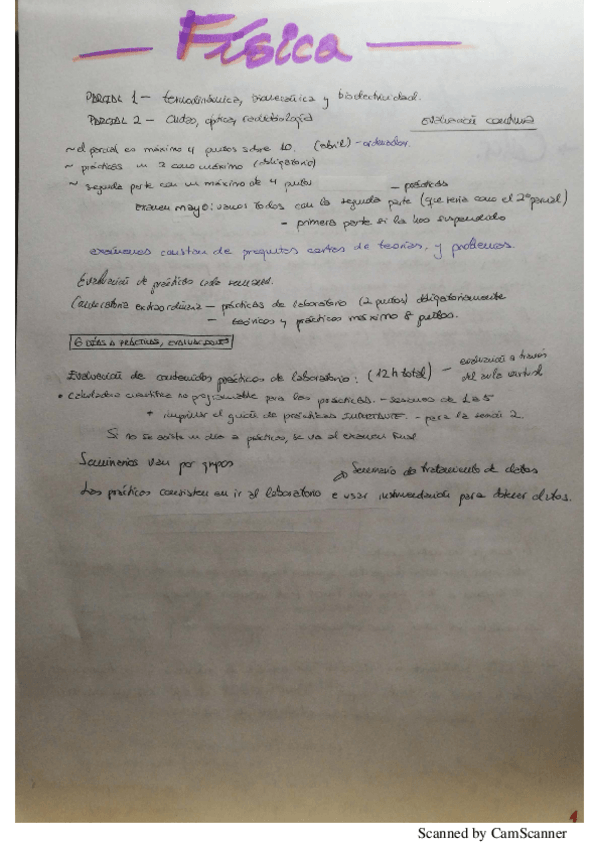 Física
PARCIAL 1 - termodinámica, biomecánica y bioelectricidad.
PARCIAL 2 - Ondas, óptica, radiobiología
evaluación continua
~ el parcial es máximo 4 puntos sobre 10. (abril) - ordenador.
~ prácticas un 2 como máximo (obligatorio)
~ segunda parte con un máximo de 4 puntos
- prácticas
examen mayo: vamos todos con la segunda parte (que sería como el 2º parcial)
- primera parte si la has suspendido
exámenes constan de preguntas cortas de teorías, y problemas.
Evaluación de prácticas cada semana.
Convocatoria extraordinaria - prácticas de laboratorio (2 puntos) obligatoriamente
- teóricos y prácticos máximo 8 puntos.
6 DÍAS A PRÁCTICAS, EVALUACIONES
Evaluación de contenidos prácticos de laboratorio: (12h total) - evaluación a través
del aula virtual
• Calculadora científica no programable para las prácticas. - sesiones de 1 a 5
+ imprimir el guión de prácticas IMPORTANTE. - para la sesión 2.
Si no se asiste un día a prácticas, se va al examen final
Seminarios van por grupos
Seminario de tratamiento de datos
Las prácticas consisten en ir al laboratorio e usar instrumentación para obtener datos.
1
Scanned by CamScanner